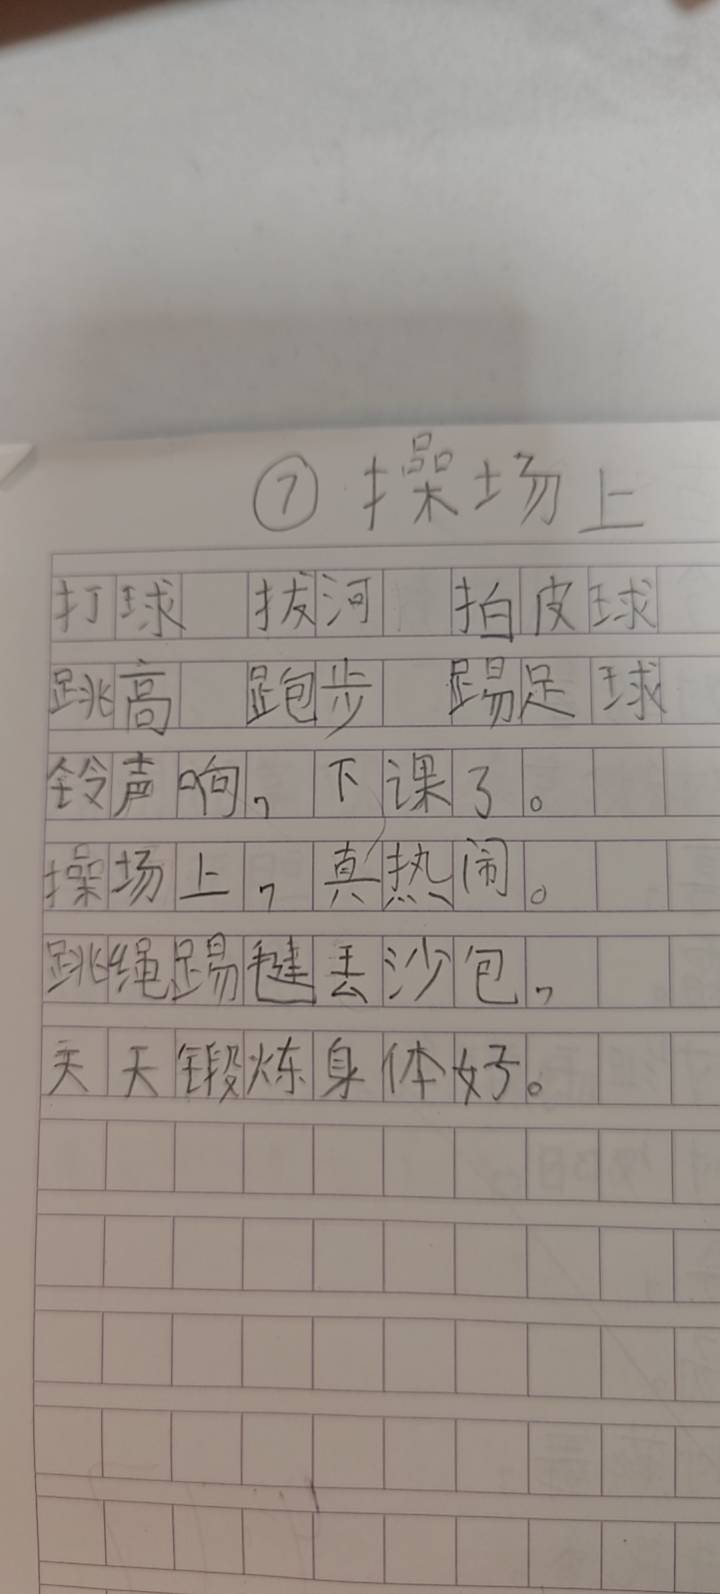 ⑦ 操场上
打球 拔河 拍皮球
跳高 跑步 踢足球
铃声响，下课了。
操场上，真热闹。
跳绳踢毽丢沙包，
天天锻炼身体好。